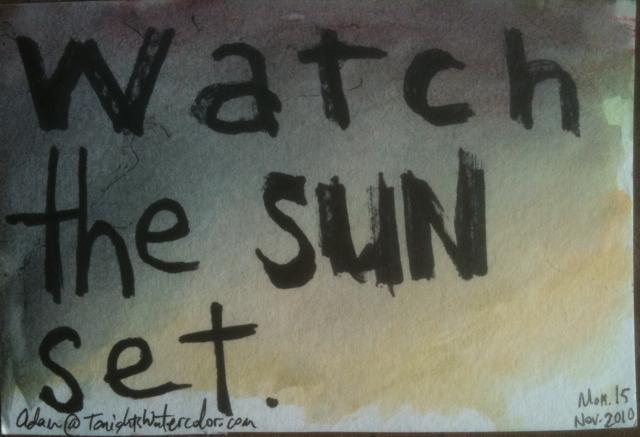 Watch
the SUN
set.
Adam@TonightsWatercolor.com
Mon. 15
Nov. 2010